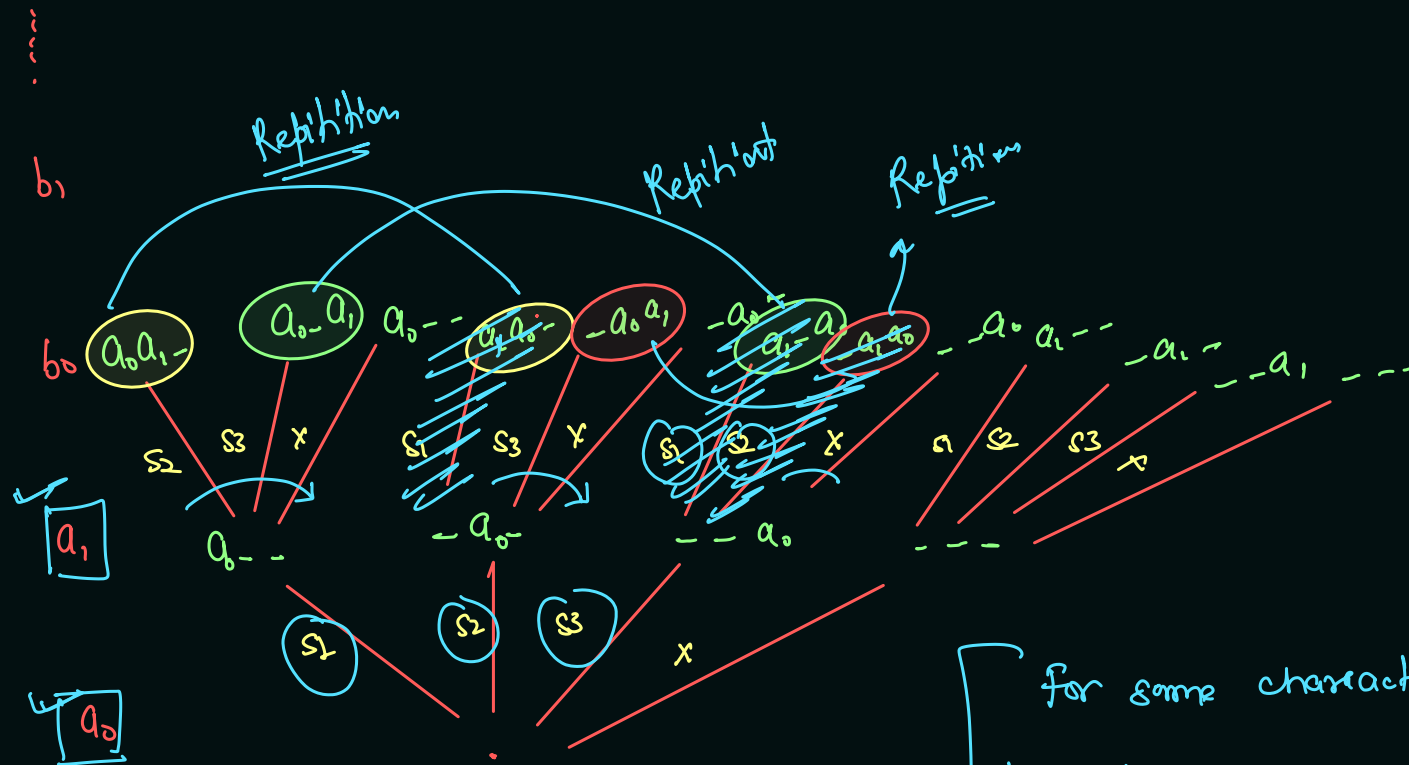 Repitition
Repitiont
Repition
b1
b0
a0 a1 -
a0 - a1
a0 - -
a1 a0 -
- a0 a1
- a0 -
a1 - a0
- a1 a0
- - a0
a1 - -
- a1 -
- - a1
- - -
S2 S3 X S1 S3 X S1 S2 X S1 S2 S3 X
a1
a0 - -
- a0 -
- - a0
- - -
S1 S2 S3 X
a0
.
For some charact